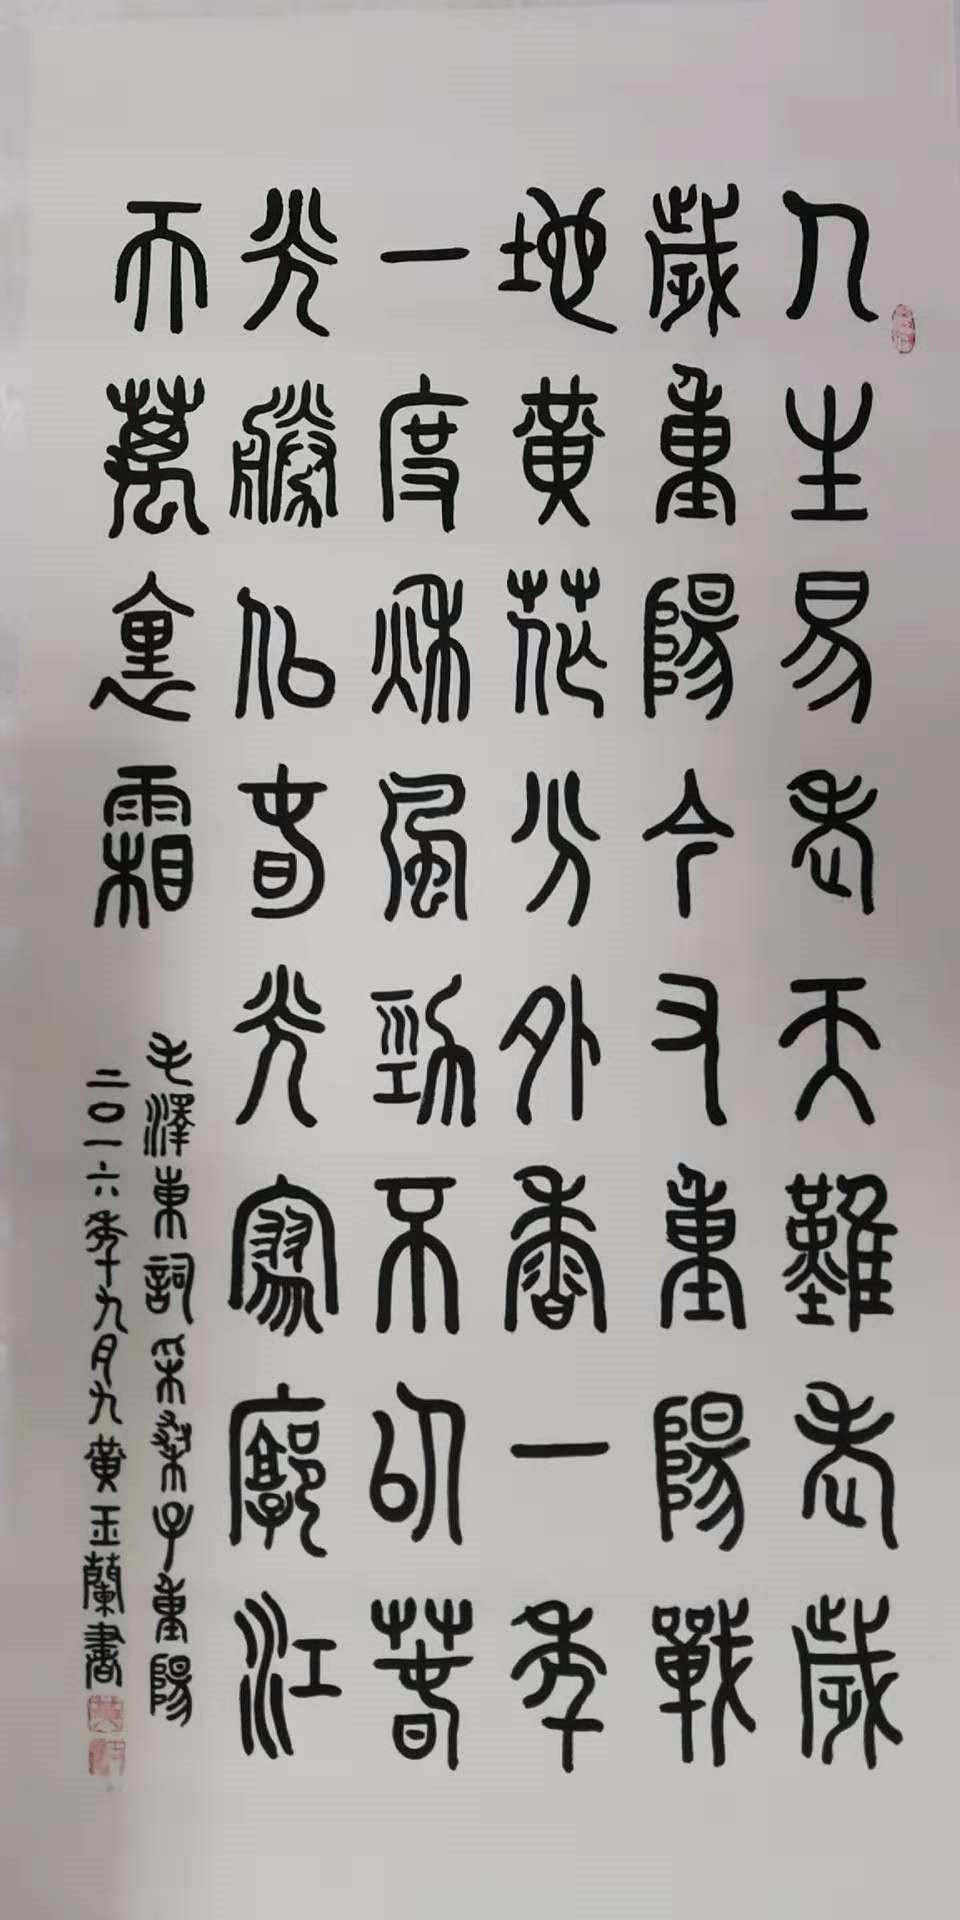 人生易老天難老歲
歲重陽今又重陽戰
地黃花分外香一年
一度秋風勁不似春
光勝似春光寥廓江
天萬裏霜
毛澤東詞采桑子重陽
二〇一六年九月九黃玉蘭書